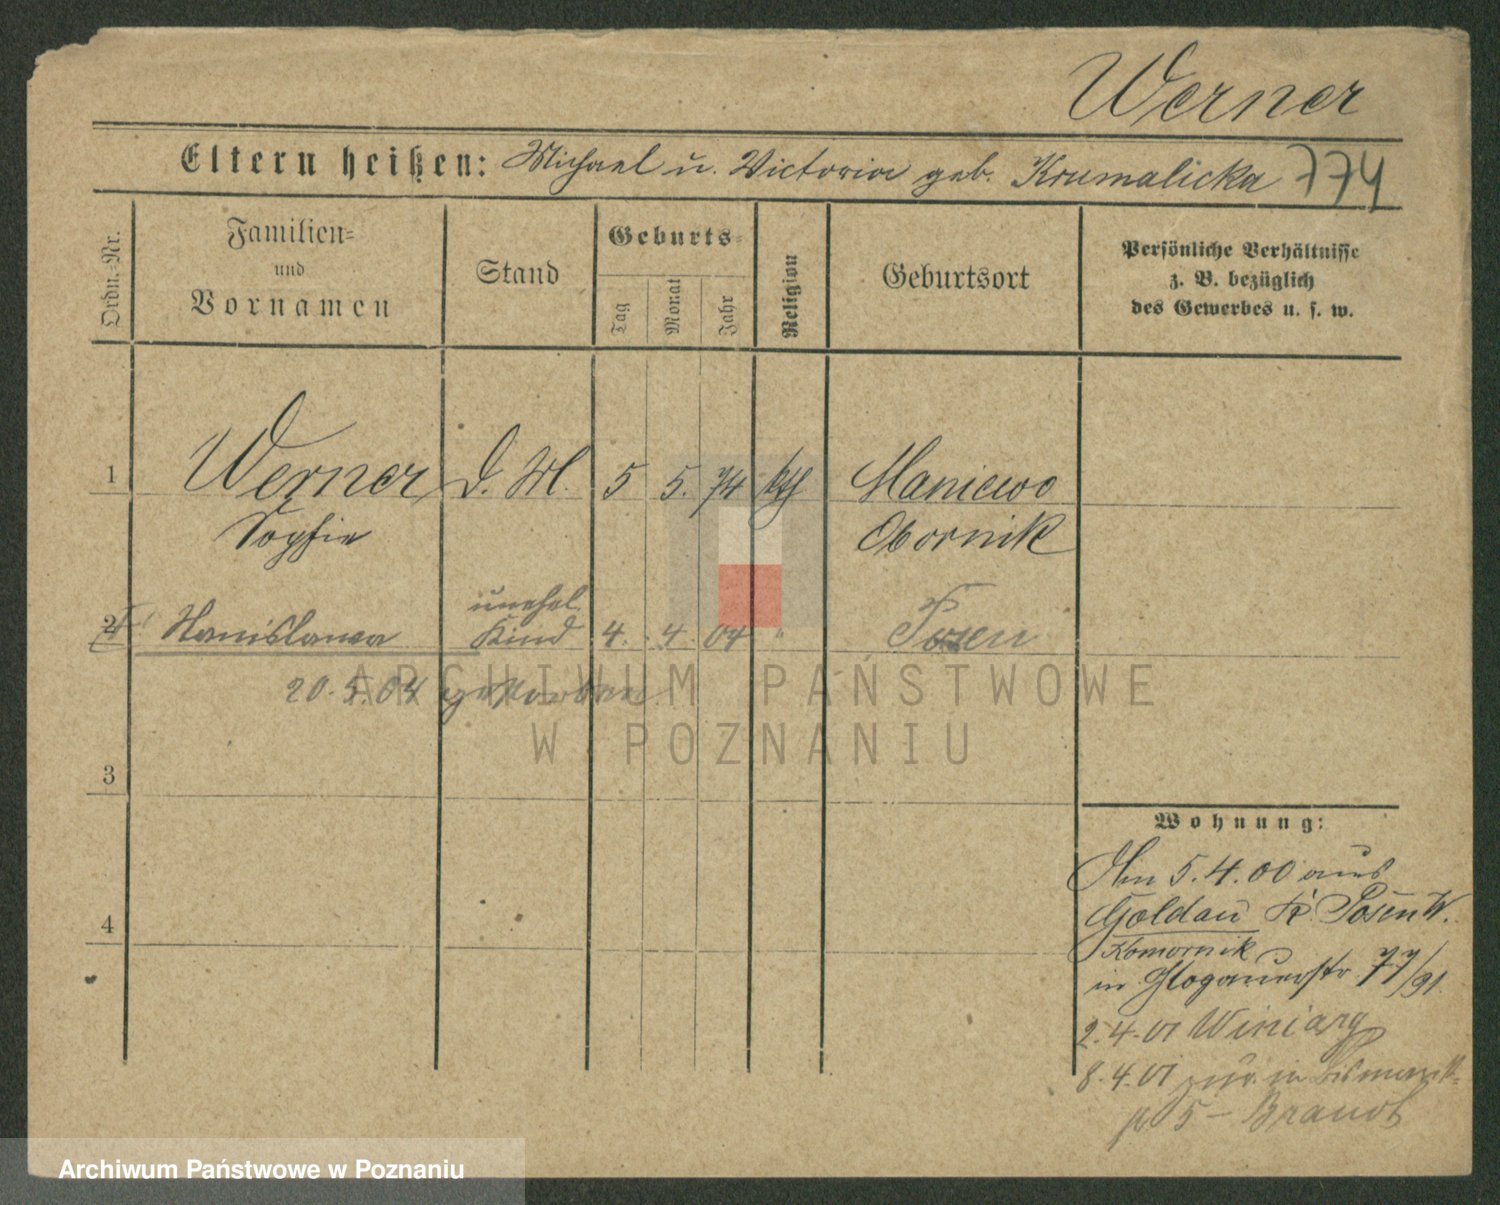 Werner
Eltern heißen: Michael u. Victoria geb. Krumalicka 774
Ordn.-Nr.
Familien-
und
Vornamen
Stand
Geburts-
Tag
Monat
Jahr
Religion
Geburtsort
Persönliche Verhältnisse
z. B. bezüglich
des Gewerbes u. s. w.
1 Werner D. M. 5 5. 74 kth Maniewo
Sophie Obornik
unehel.
2 Stanislawa Kind 4. 4 04 " Posen
20.5.04 gestorben
ARCHIWUM PAŃSTWOWE
W POZNANIU
3
4
Wohnung:
Am 5.4.00 aus
Goldau Kr. Posen W.
Komornik
in Glogauerstr. 77/91
2.4.01 Winiary
8.4.01 zur. in Bismarckst.
5 – Brandt
Archiwum Państwowe w Poznaniu